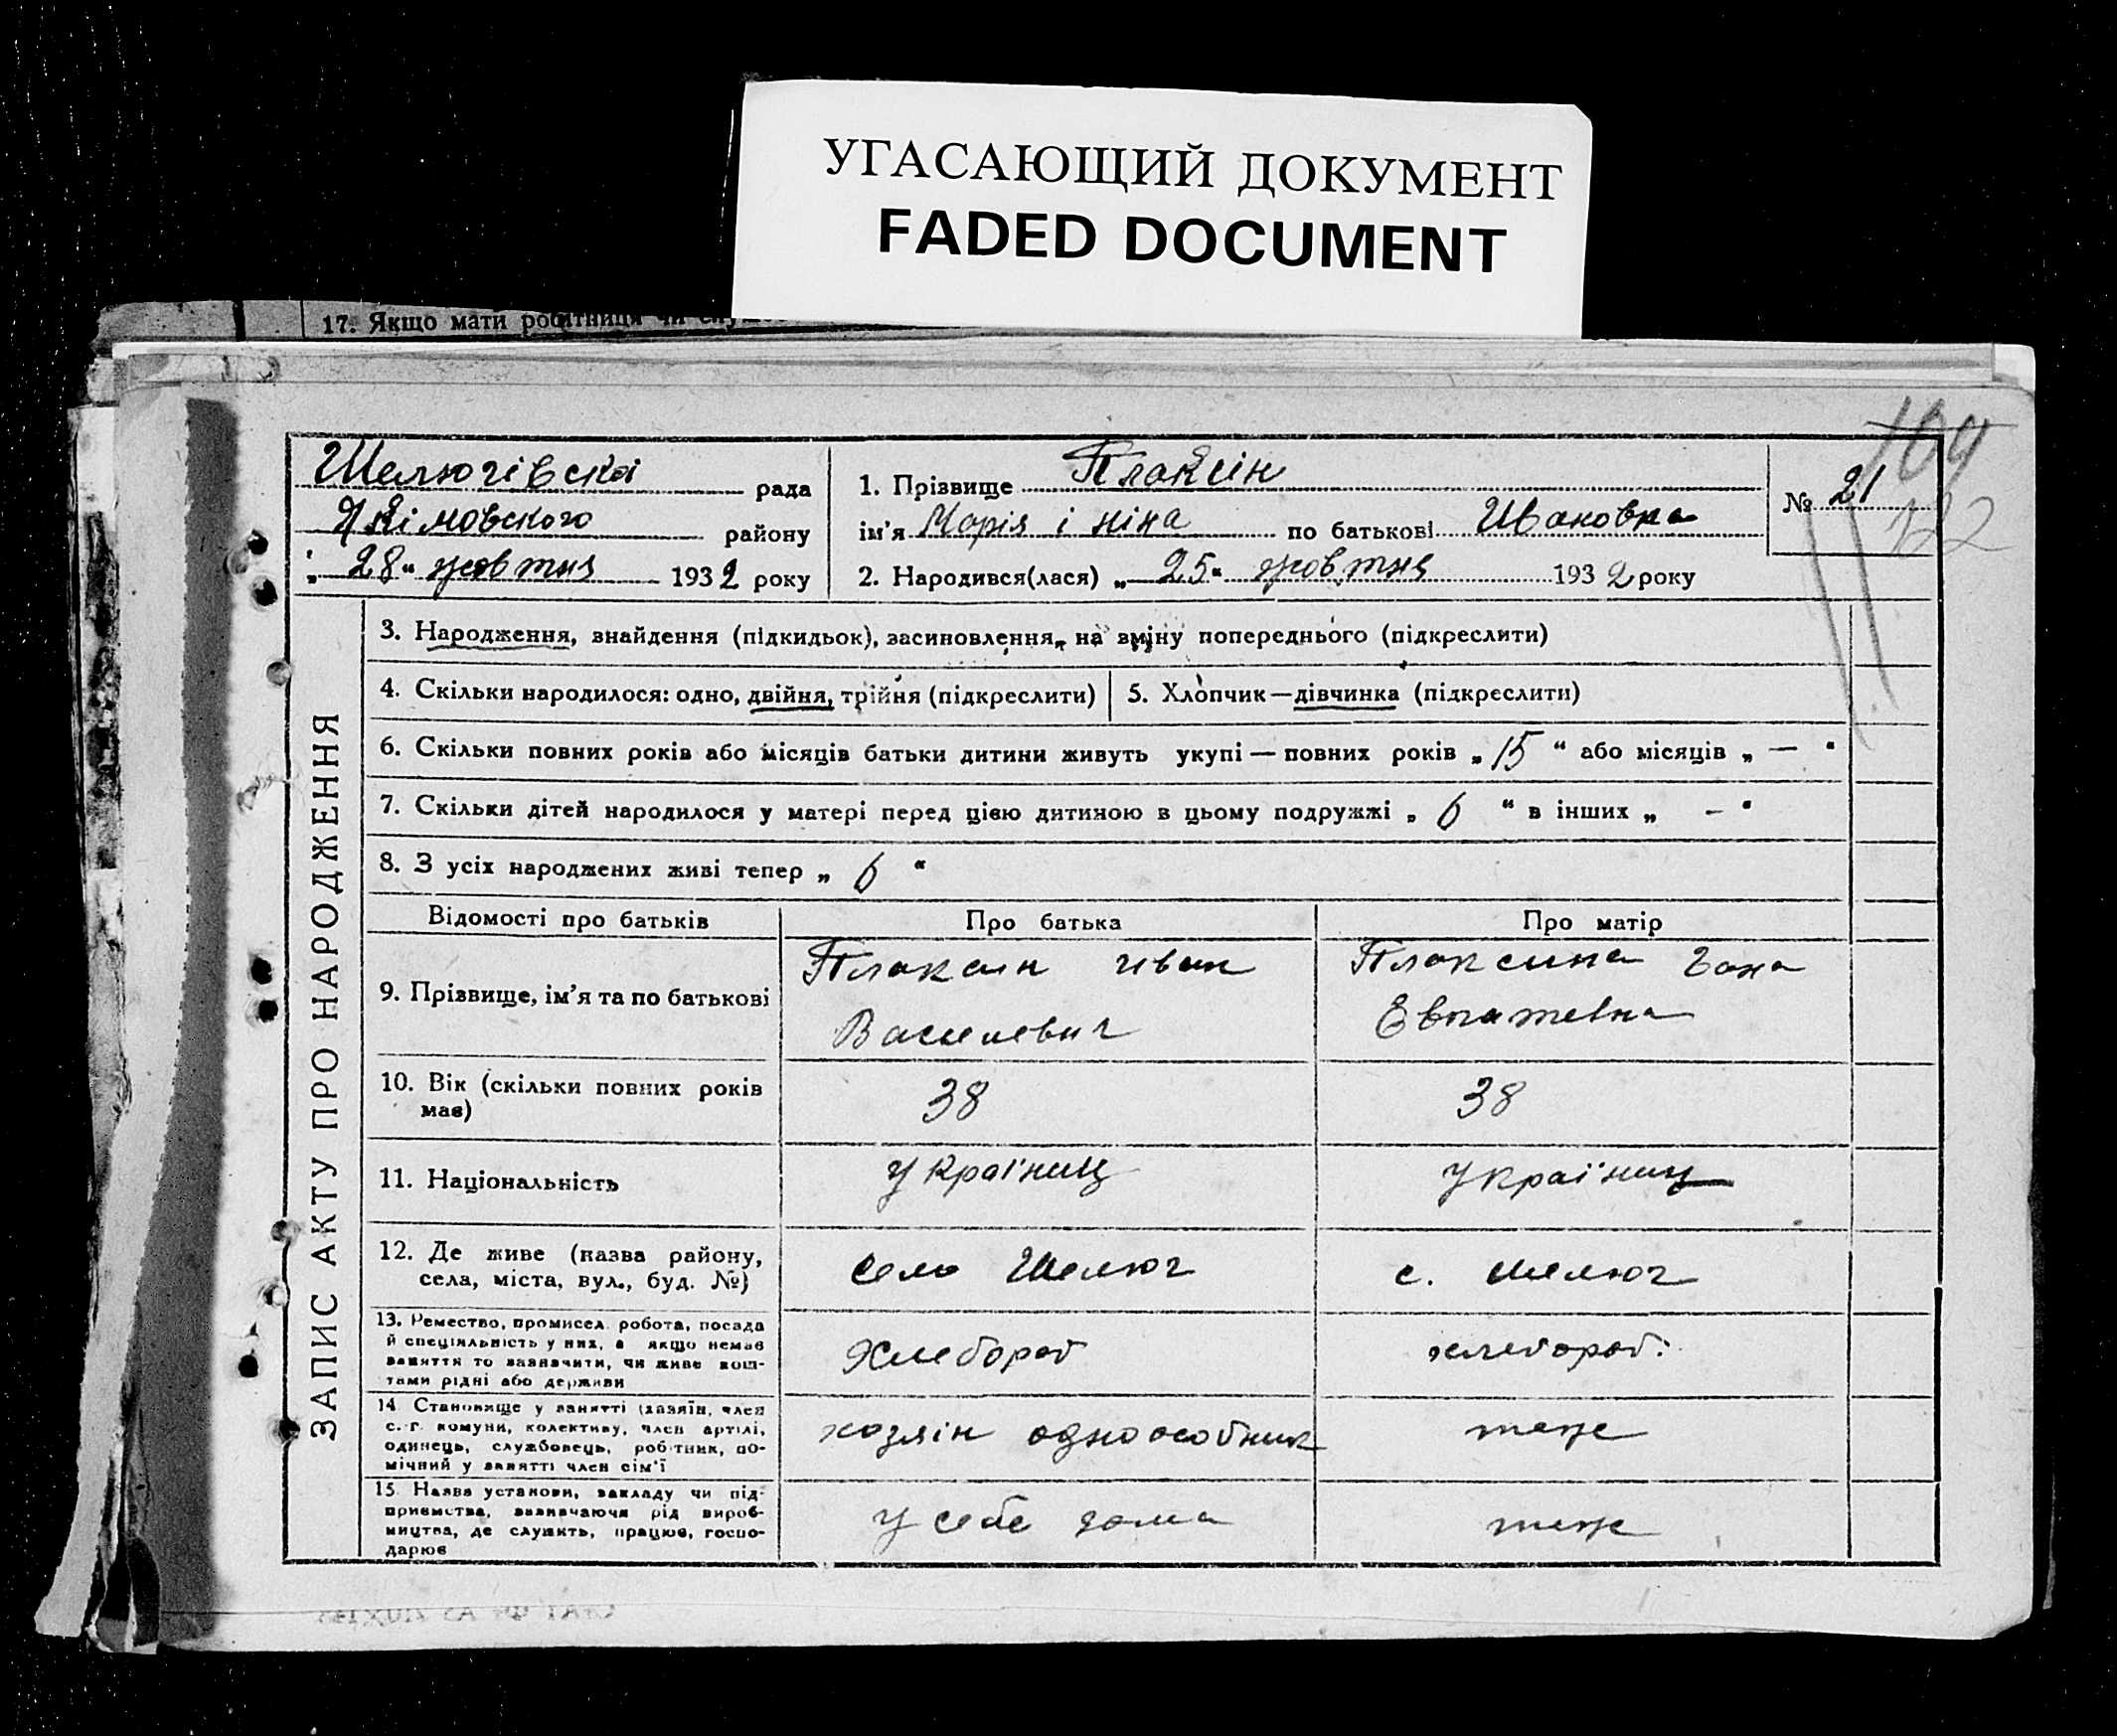 УГАСАЮЩИЙ ДОКУМЕНТ
FADED DOCUMENT
17. Якщо мати робітниця чи
109
122
Шелюгівска рада
Якімовского району
„ 28 “ жовтня 1932 року
1. Прізвище Плаксін
ім’я Марія і ніна по батькові Ивановна
2. Народився(лася) „ 25 “ жовтня 1932 року
№ 21
ЗАПИС АКТУ ПРО НАРОДЖЕННЯ
3. Народження, знайдення (підкидьок), засиновлення, на зміну попереднього (підкреслити)
4. Скільки народилося: одно, двійня, трійня (підкреслити)
5. Хлопчик—дівчинка (підкреслити)
6. Скільки повних років або місяців батьки дитини живуть укупі — повних років „ 15 “ або місяців „ — “
7. Скільки дітей народилося у матері перед цією дитиною в цьому подружжі „ 6 “ в інших „ – “
8. З усіх народжених живі тепер „ 6 “
Відомості про батьків
Про батька
Про матір
9. Прізвище, ім’я та по батькові
Плаксин иван
Василевич
Плаксина
10. Вік (скільки повних років
має)
38
38
11. Національність
Україниц
Україниц
12. Де живе (назва району,
села, міста, вул., буд. №)
село Шелюг
с. шелюг
13. Ремество, промисел, робота, посада
й спеціяльність у них, а якщо немає
заняття то зазначити, чи живе кош-
тами рідні або держави
Хлебороб
хлебороб.
14. Становище у занятті (хазяїн, член
с.-г. комуни, колективу, член артілі,
одинець, службовець, робітник, по-
мічний у занятті член сім’ї
хозяін одноособник
теже
15. Назва установи, закладу чи під-
приємства, зазначаючи рід вироб-
ництва, де служить, працює, госпо-
дарює
у себе дома
теже